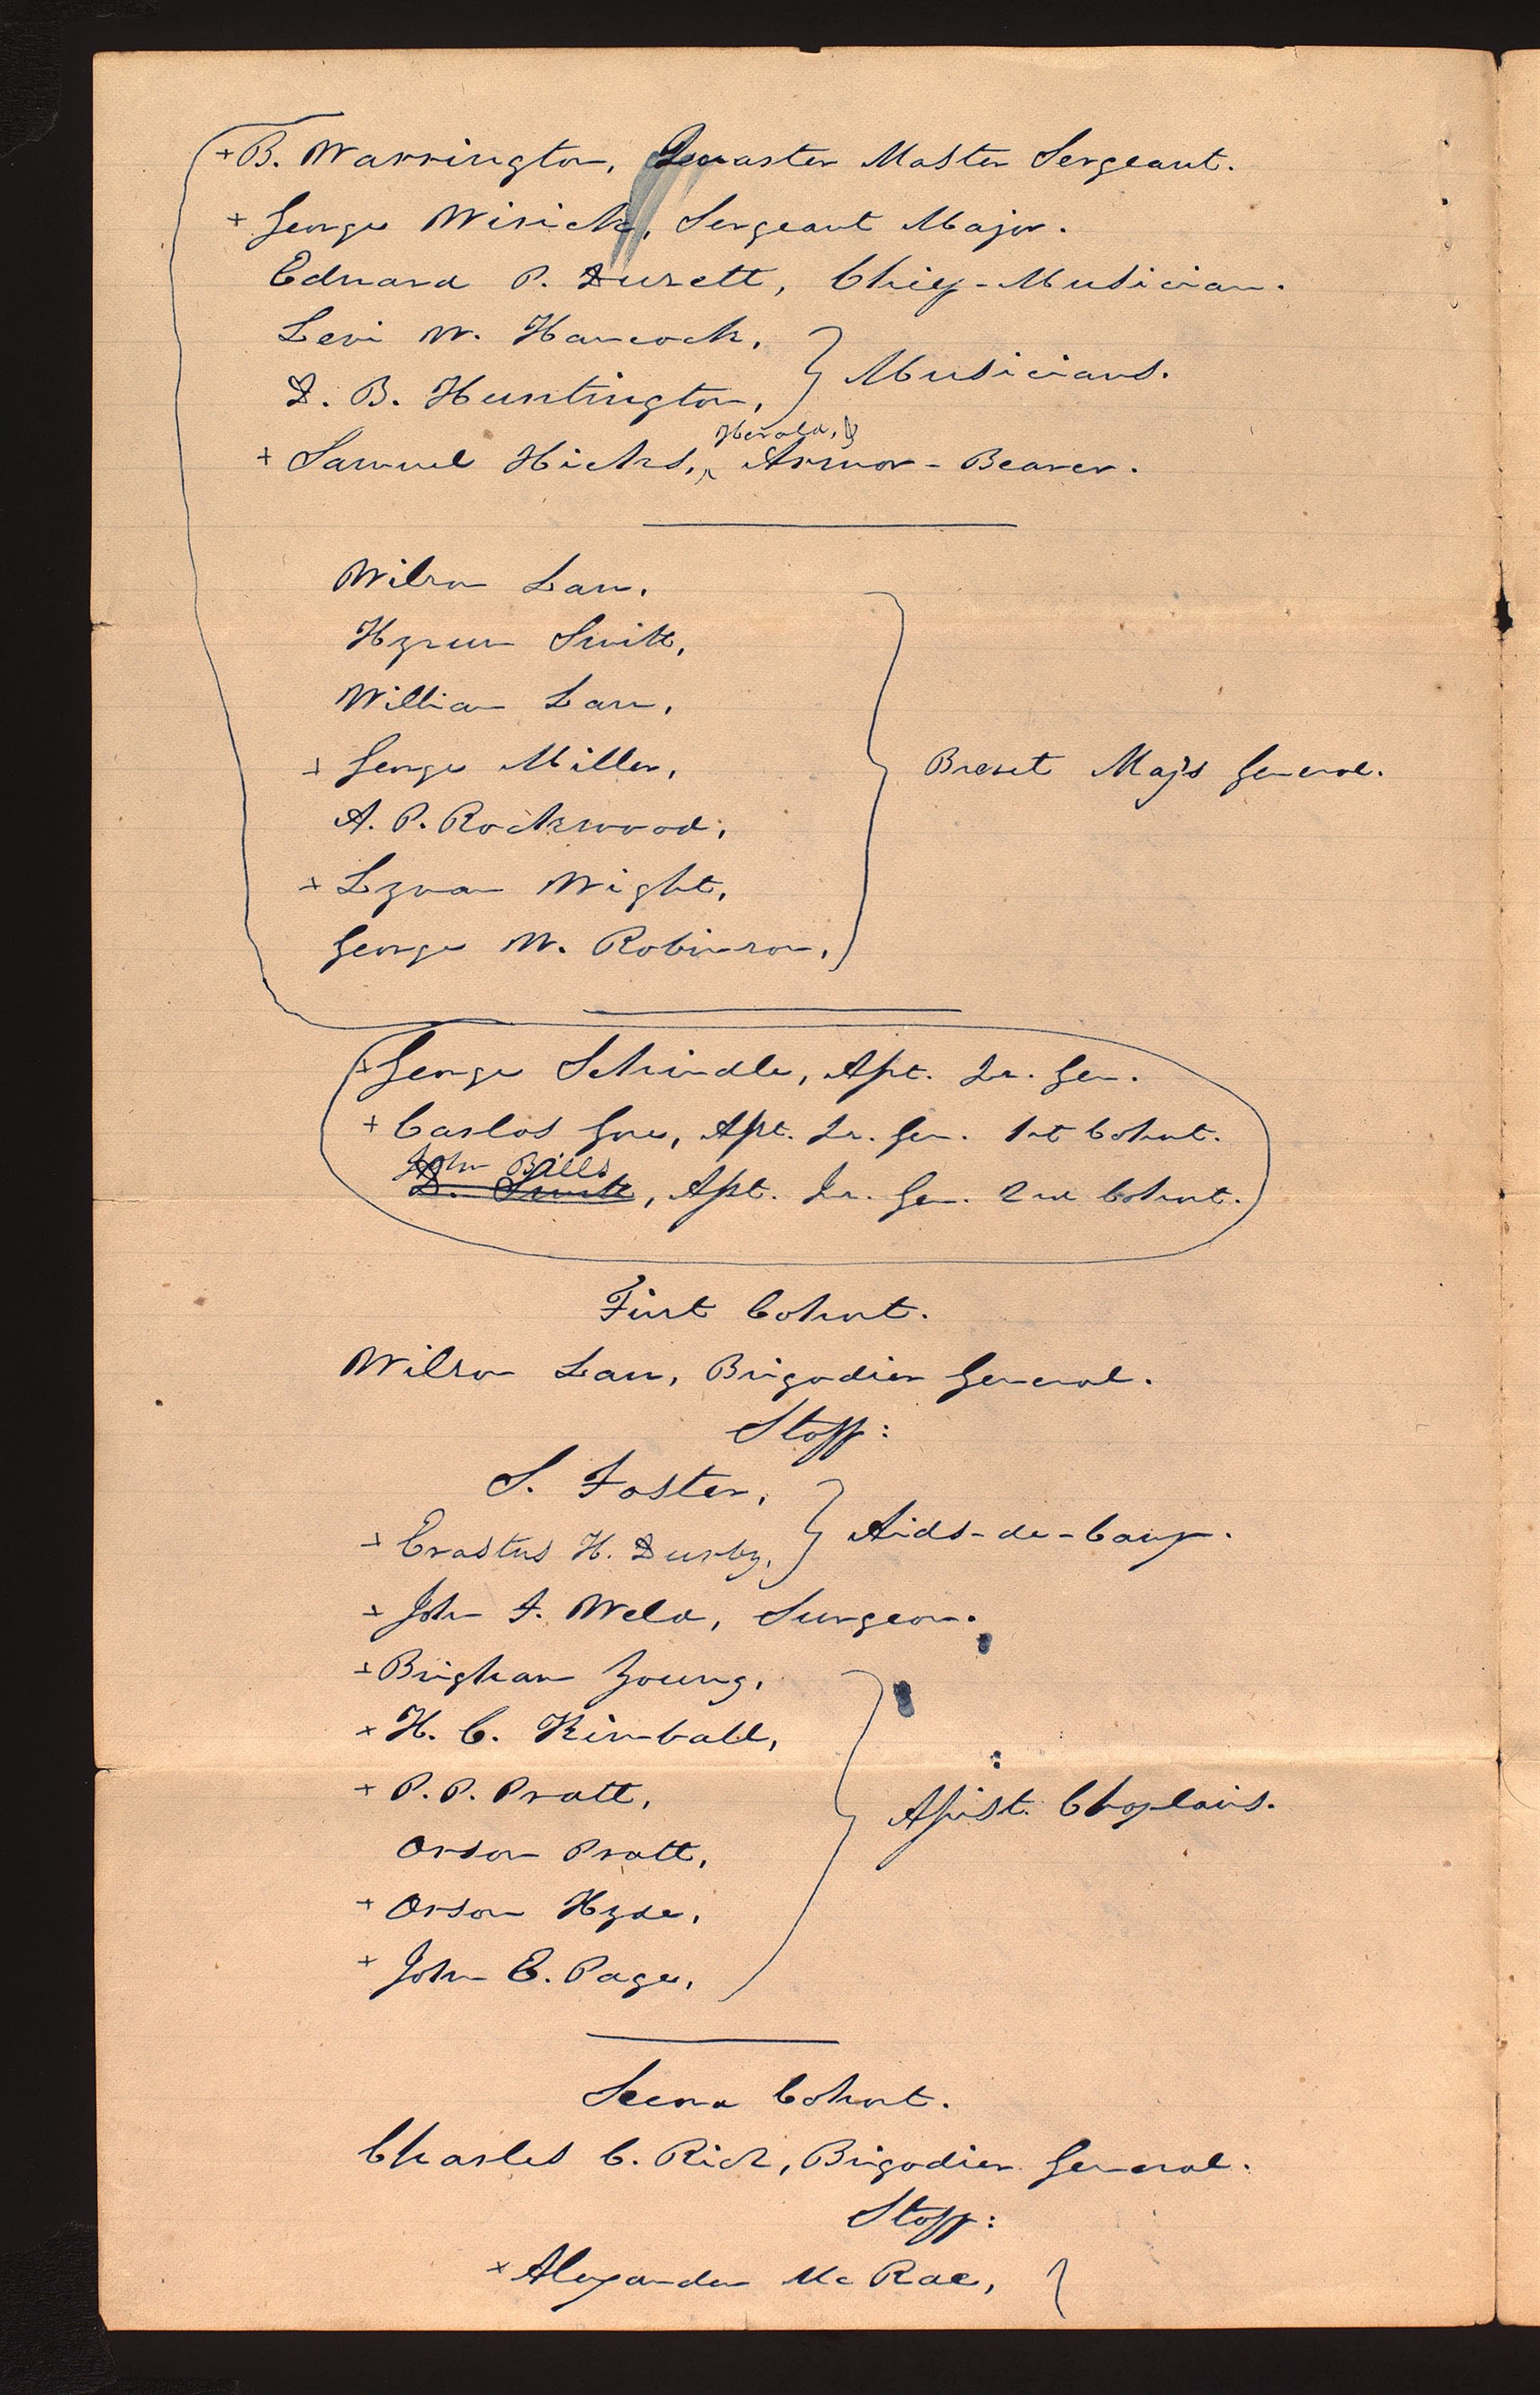 + B. Warrington, Quaster Master Sergeant.
+ George Wirick, Sergeant Major.
Edward P. Duzett, Chief-Musician.
Levi W. Hancock,
D. B. Huntington, } Musicians.
Herald, &
+ Samuel Hicks, ^ Armor-Bearer.
Wilson Law.
Hyrum Smith,
William Law,
+ George Miller,
Brevet Majs General.
A. P. Rockwood,
+ Lyman Wight,
George W. Robinson,
+ George Schindle, Asst. Qr. Gen.
+ Carlos Gove, Asst. Qr. Gen. 1st Cohort.
John Bills
D. Smith, Asst. Qr. Gen. 2nd Cohort.
First Cohort.
Wilson Law, Brigadier General.
Staff:
S. Foster,
+ Erastus H. Durby, } Aids-de-Camp.
+ John F. Weld, Surgeon.
+ Brigham Young,
+ H. C. Kimball,
+ P. P. Pratt,
Assist. Chaplains.
Orson Pratt,
+ Orson Hyde,
+ John E. Page,
Second Cohort.
Charles C. Rich, Brigadier General.
Staff:
+ Alexander McRae, }